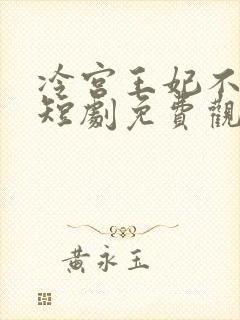 冷宮王妃不
短劇免費觀
黃永玉